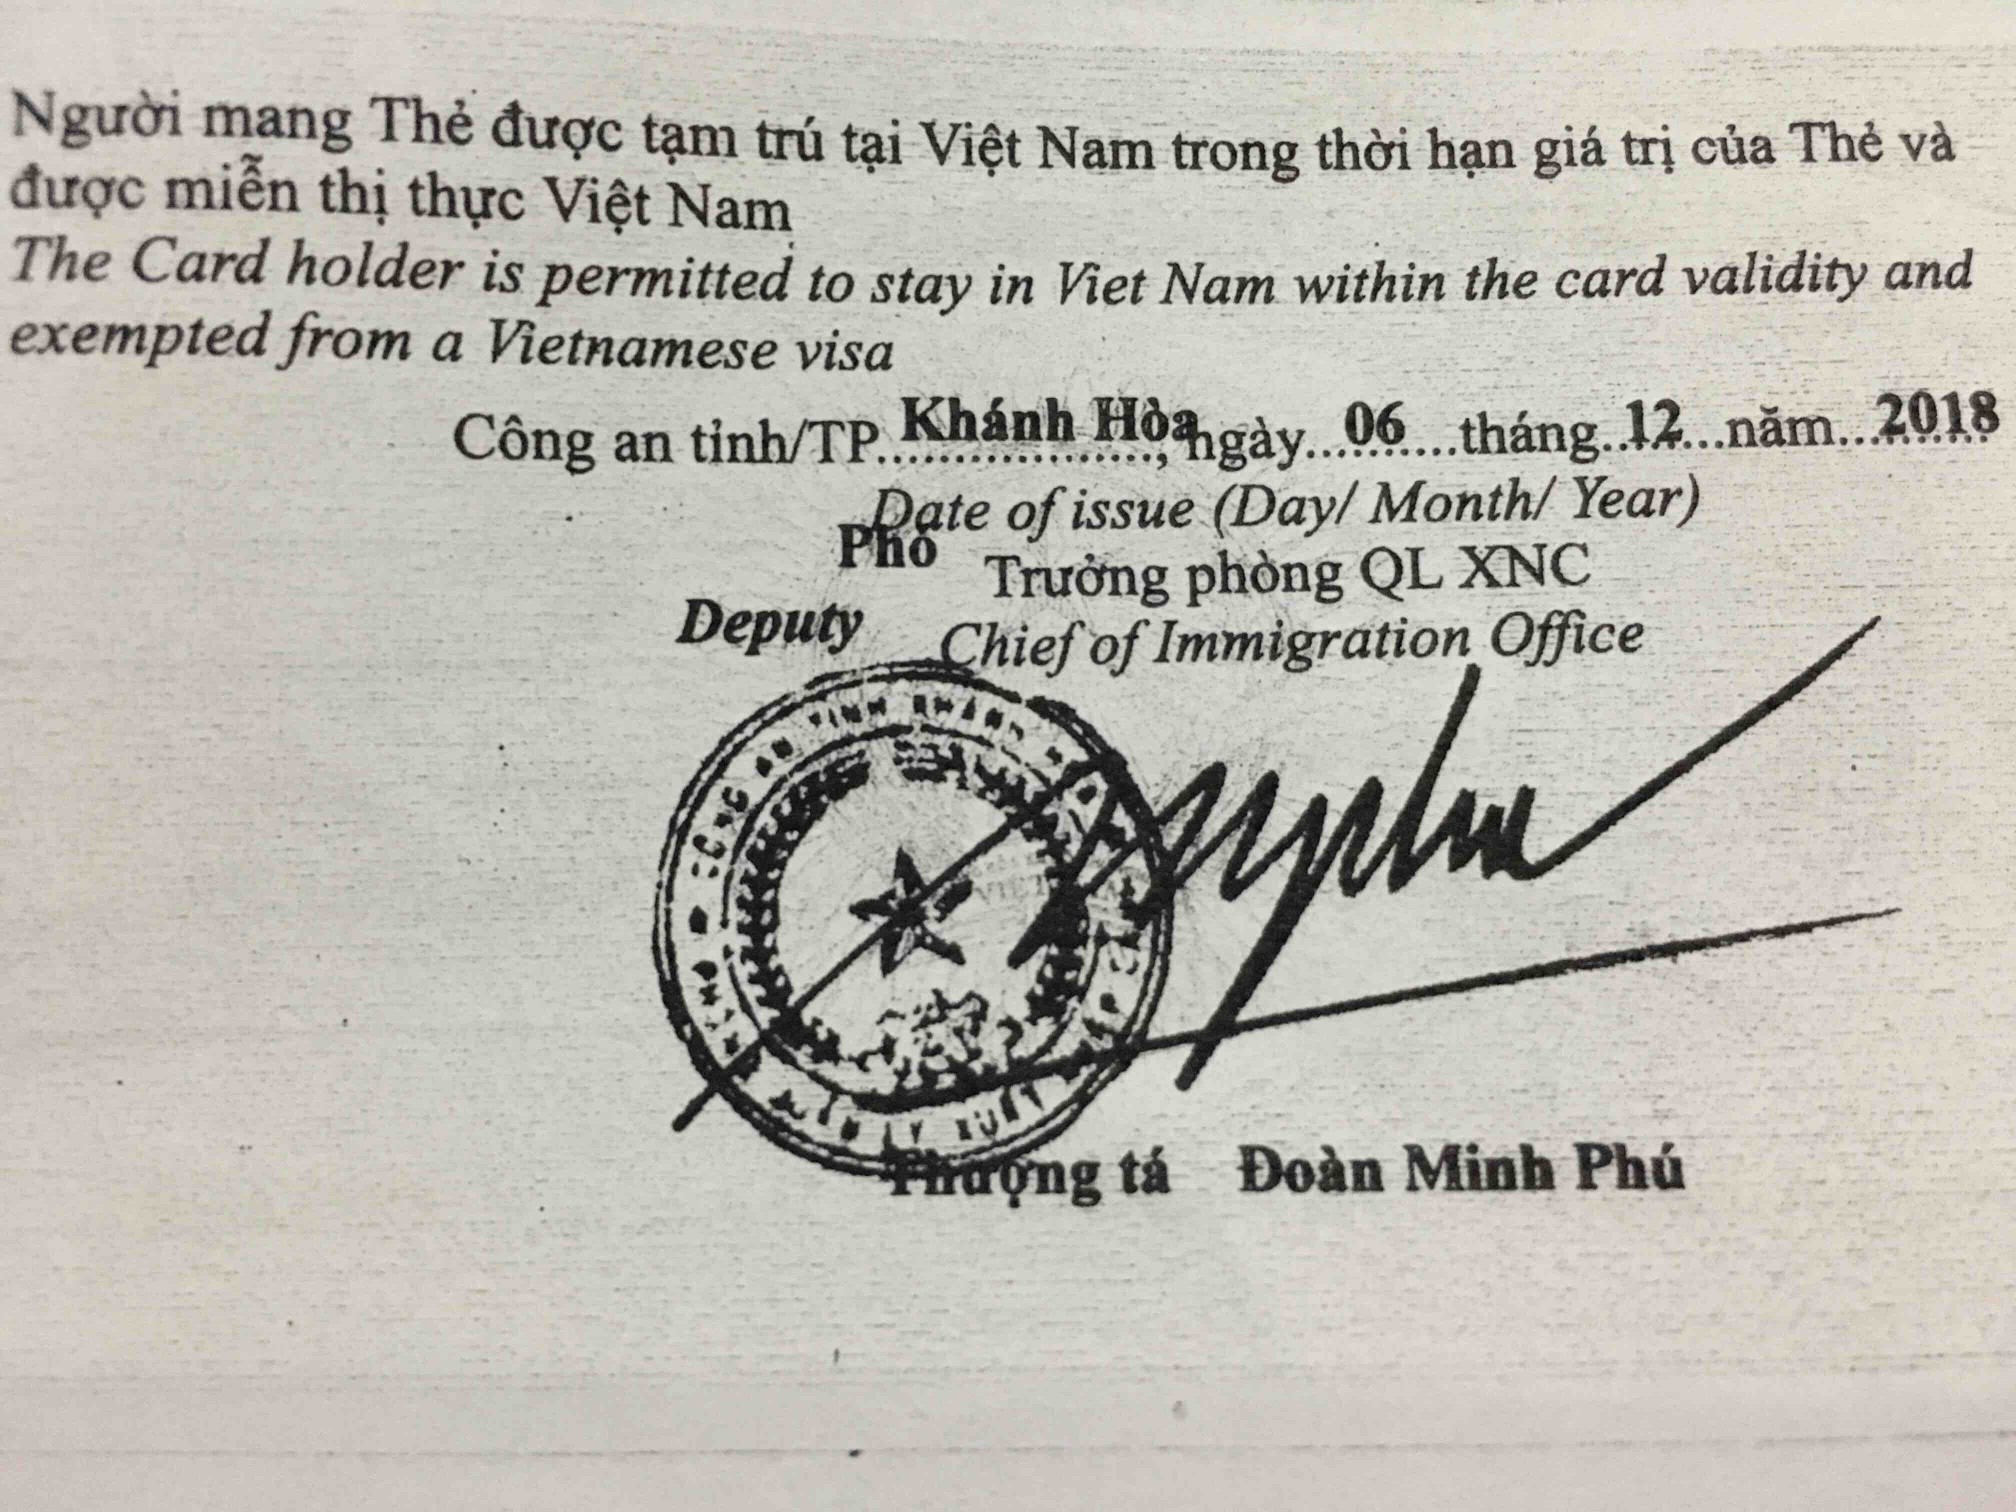 Người mang Thẻ được tạm trú tại Việt Nam trong thời hạn giá trị của Thẻ và
được miễn thị thực Việt Nam
The Card holder is permitted to stay in Viet Nam within the card validity and
exempted from a Vietnamese visa
Công an tỉnh/TP Khánh Hòa, ngày 06 tháng 12 năm 2018
Date of issue (Day/ Month/ Year)
Phó Trưởng phòng QL XNC
Deputy Chief of Immigration Office
CÔNG AN TỈNH KHÁNH
Thượng tá Đoàn Minh Phú